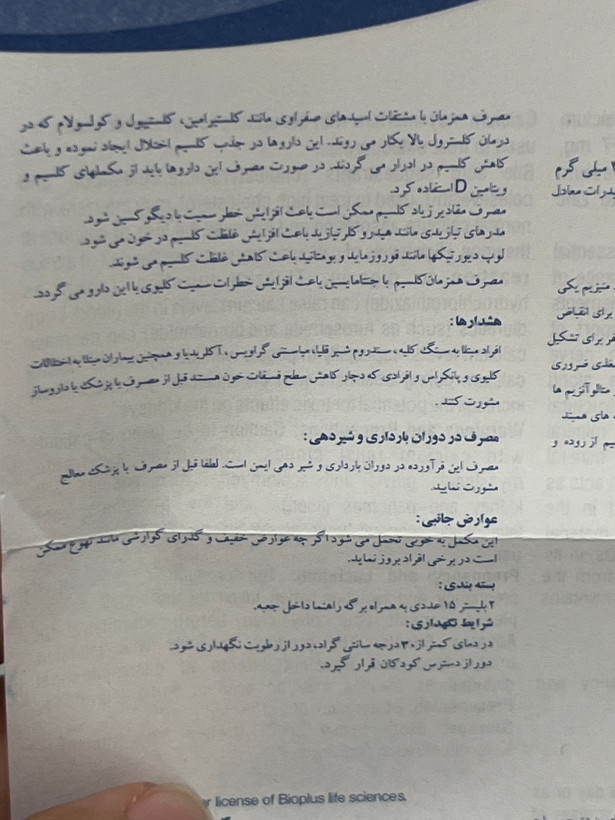 مصرف همزمان با مشتقات اسیدهای صفراوی مانند کلستیرامین، کلستیپول و کولسولام که در
درمان کلسترول بالا بکار می روند. این داروها در جذب کلسیم اختلال ایجاد نموده و باعث
کاهش کلسیم در ادرار می گردند. در صورت مصرف این داروها باید از مکملهای کلسیم و
ویتامین D استفاده کرد.
مصرف مقادیر زیاد کلسیم ممکن است باعث افزایش خطر سمیت با دیگوکسین شود.
مدرهای تیازیدی مانند هیدروکلرتیازید باعث افزایش غلظت کلسیم در خون می شود.
لوپ دیورتیکها مانند فوروزماید و بومتانید باعث کاهش غلظت کلسیم می شوند.
مصرف همزمان کلسیم با جنتامایسین باعث افزایش خطرات سمیت کلیوی با این دارو می گردد.
هشدارها:
افراد مبتلا به سنگ کلیه، سندروم شیر قلیا، میاستنی گراویس، آکلریدیا و همچنین بیماران مبتلا به اختلالات
کلیوی و پانکراس و افرادی که دچار کاهش سطح فسفات خون هستند قبل از مصرف با پزشک یا داروساز
مشورت کنند.
مصرف در دوران بارداری و شیردهی:
مصرف این فرآورده در دوران بارداری و شیر دهی ایمن است. لطفا قبل از مصرف با پزشک معالج
مشورت نمایید.
عوارض جانبی:
این مکمل به خوبی تحمل می شود اگر چه عوارض خفیف و گذرای گوارشی مانند تهوع ممکن
است در برخی افراد بروز نماید.
بسته بندی:
۲ بلیستر ۱۵ عددی به همراه برگه راهنما داخل جعبه.
شرایط نگهداری:
در دمای کمتر از ۳۰ درجه سانتی گراد، دور از رطوبت نگهداری شود.
دور از دسترس کودکان قرار گیرد.
میلی گرم
درات معادل
منیزیم یکی
برای انقباض
فر برای تشکیل
ضروری
های همبند
یم از روده و
license of Bioplus life sciences.